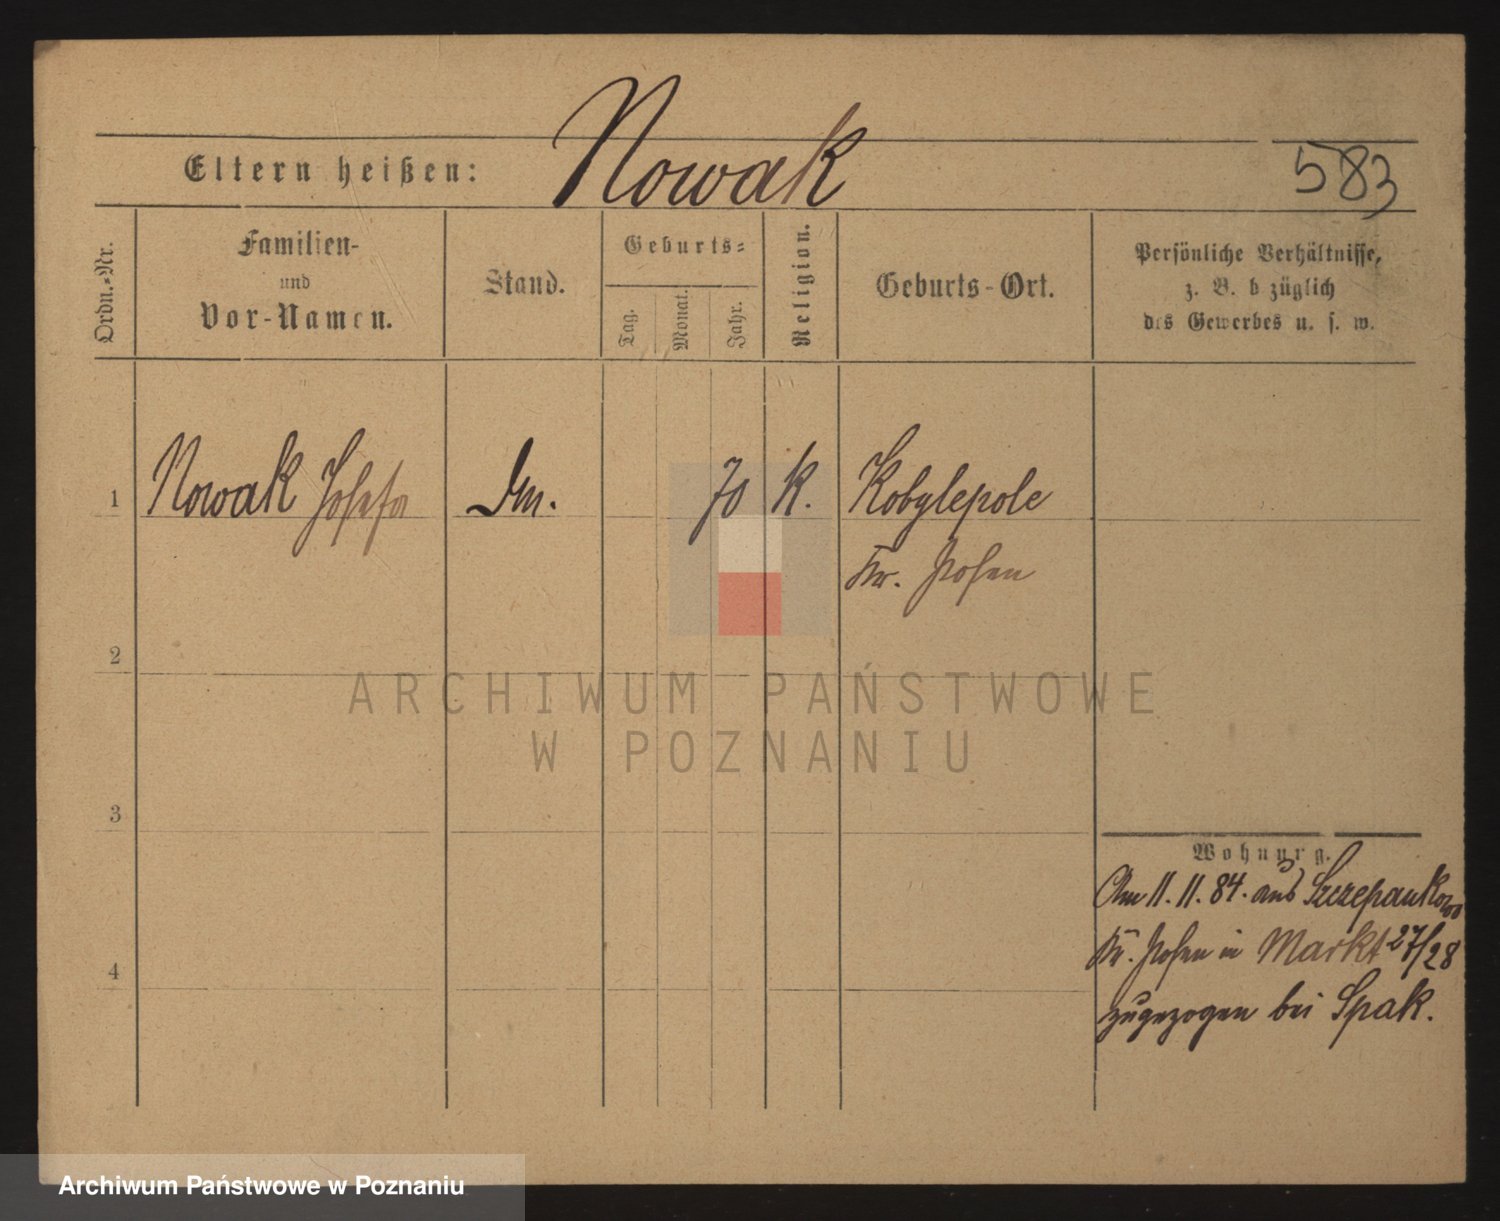 Eltern heißen: Nowak 583
Ordn.-Nr.
Familien-
und
Vor-Namen.
Stand.
Geburts=
Tag.
Monat.
Jahr.
Religion.
Geburts-Ort.
Persönliche Verhältnisse,
z. B. b züglich
des Gewerbes u. s. w.
1 Nowak Josefa 70 k. Kobylepole
Kr. Posen
2
ARCHIWUM PAŃSTWOWE
W POZNANIU
3
Wohnung.
Am 11. 11. 84. aus Szczepankowo
Kr. Posen in Markt 27/28
zugezogen bei Spak.
4
Archiwum Państwowe w Poznaniu